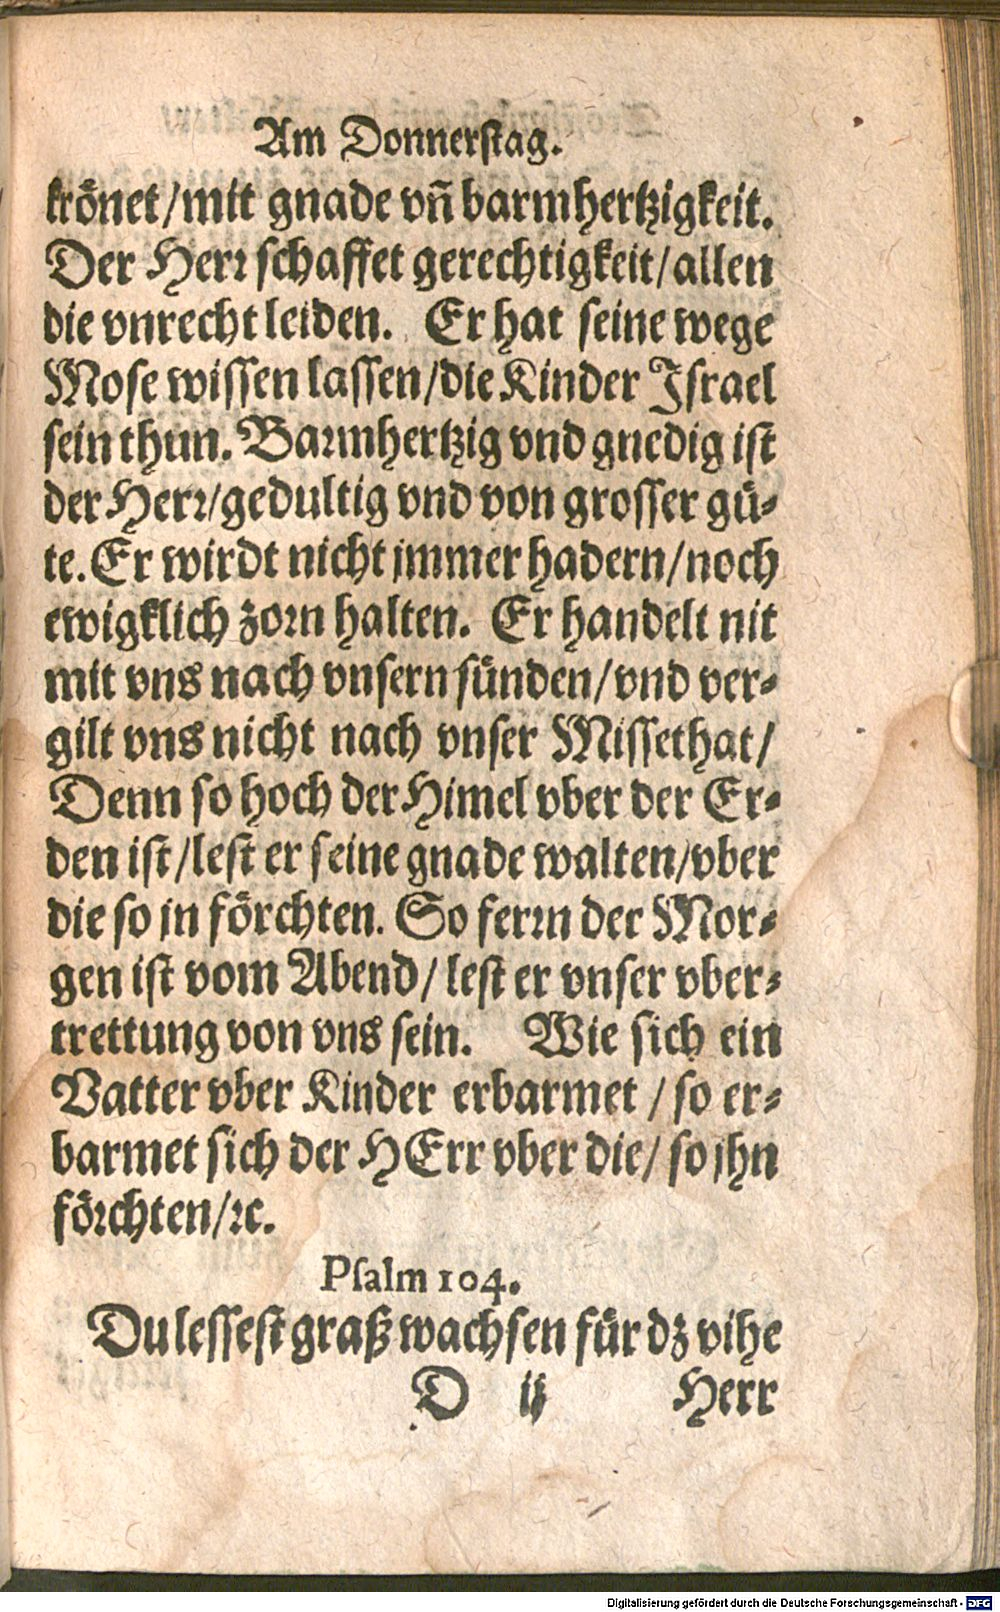 Am Donnerstag.
krönet/mit gnade vñ barmhertzigkeit.
Der Herr schaffet gerechtigkeit/allen
die vnrecht leiden. Er hat seine wege
Mose wissen lassen/die Kinder Israel
sein thun. Barmhertzig vnd gnedig ist
der Herr/gedultig vnd von grosser gü-
te. Er wirdt nicht jmmer hadern/noch
ewigklich zorn halten. Er handelt nit
mit vns nach vnsern sünden/vnd ver-
gilt vns nicht nach vnser Missethat/
Denn so hoch der Himel vber der Er-
den ist/lest er seine gnade walten/vber
die so jn förchten. So ferrn der Mor-
gen ist vom Abend/lest er vnser vber-
trettung von vns sein. Wie sich ein
Vatter vber Kinder erbarmet/so er-
barmet sich der HErr vber die/so jhn
förchten/ꝛc.
Psalm 104.
Du lessest graß wachsen für dz vihe
D ij Herr
Digitalisierung gefördert durch die Deutsche Forschungsgemeinschaft - DFG